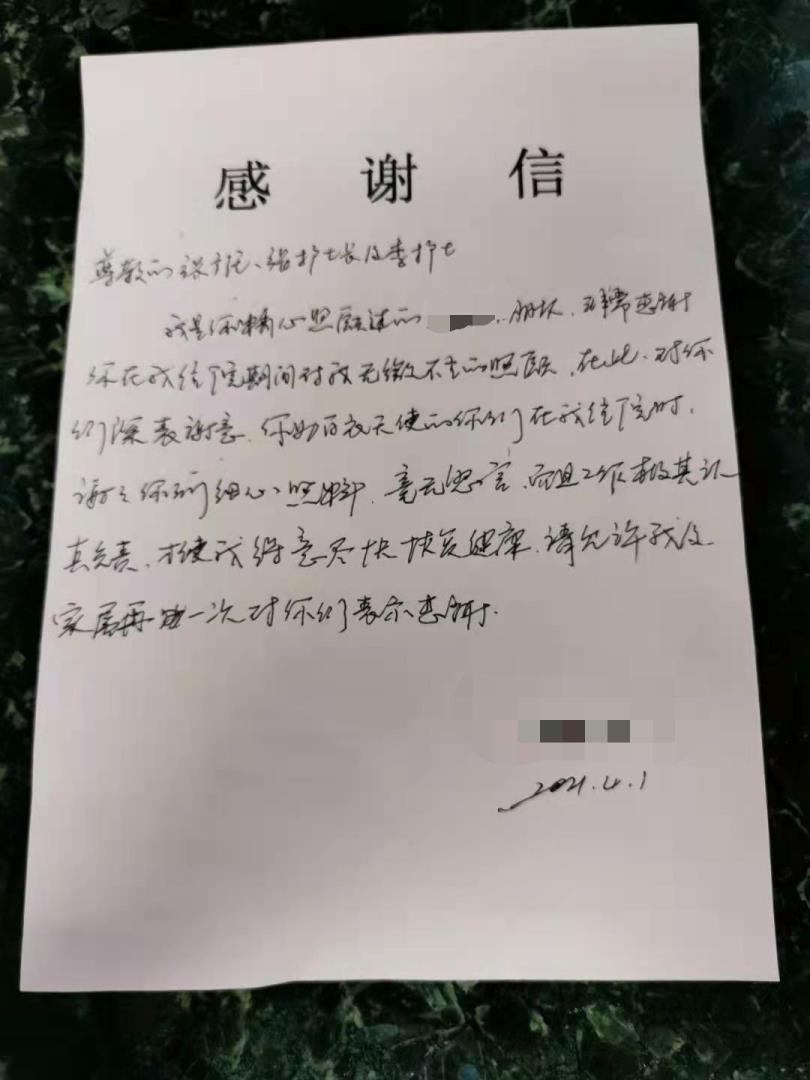 感谢信
尊敬的张主任、张护士长及李护士
我是你精心照顾过的 朋友,非常感谢
你在我住院期间对我无微不至的照顾,在此,对你
们深表谢意,你如白衣天使的你们在我住院时,
你们细心照料,毫无怨言,而且工作极其认
真负责,才使我得意尽快恢复健康,请允许我及
家属再一次对你们表示感谢.
2021.4.1